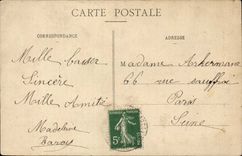 CARTE POSTALE
CORRESPONDANCE
ADRESSE
Mille baiser
Sincère
Mille Amitié
Madeleine
Madame Ackermann
66 rue
Paris
Seine
5c